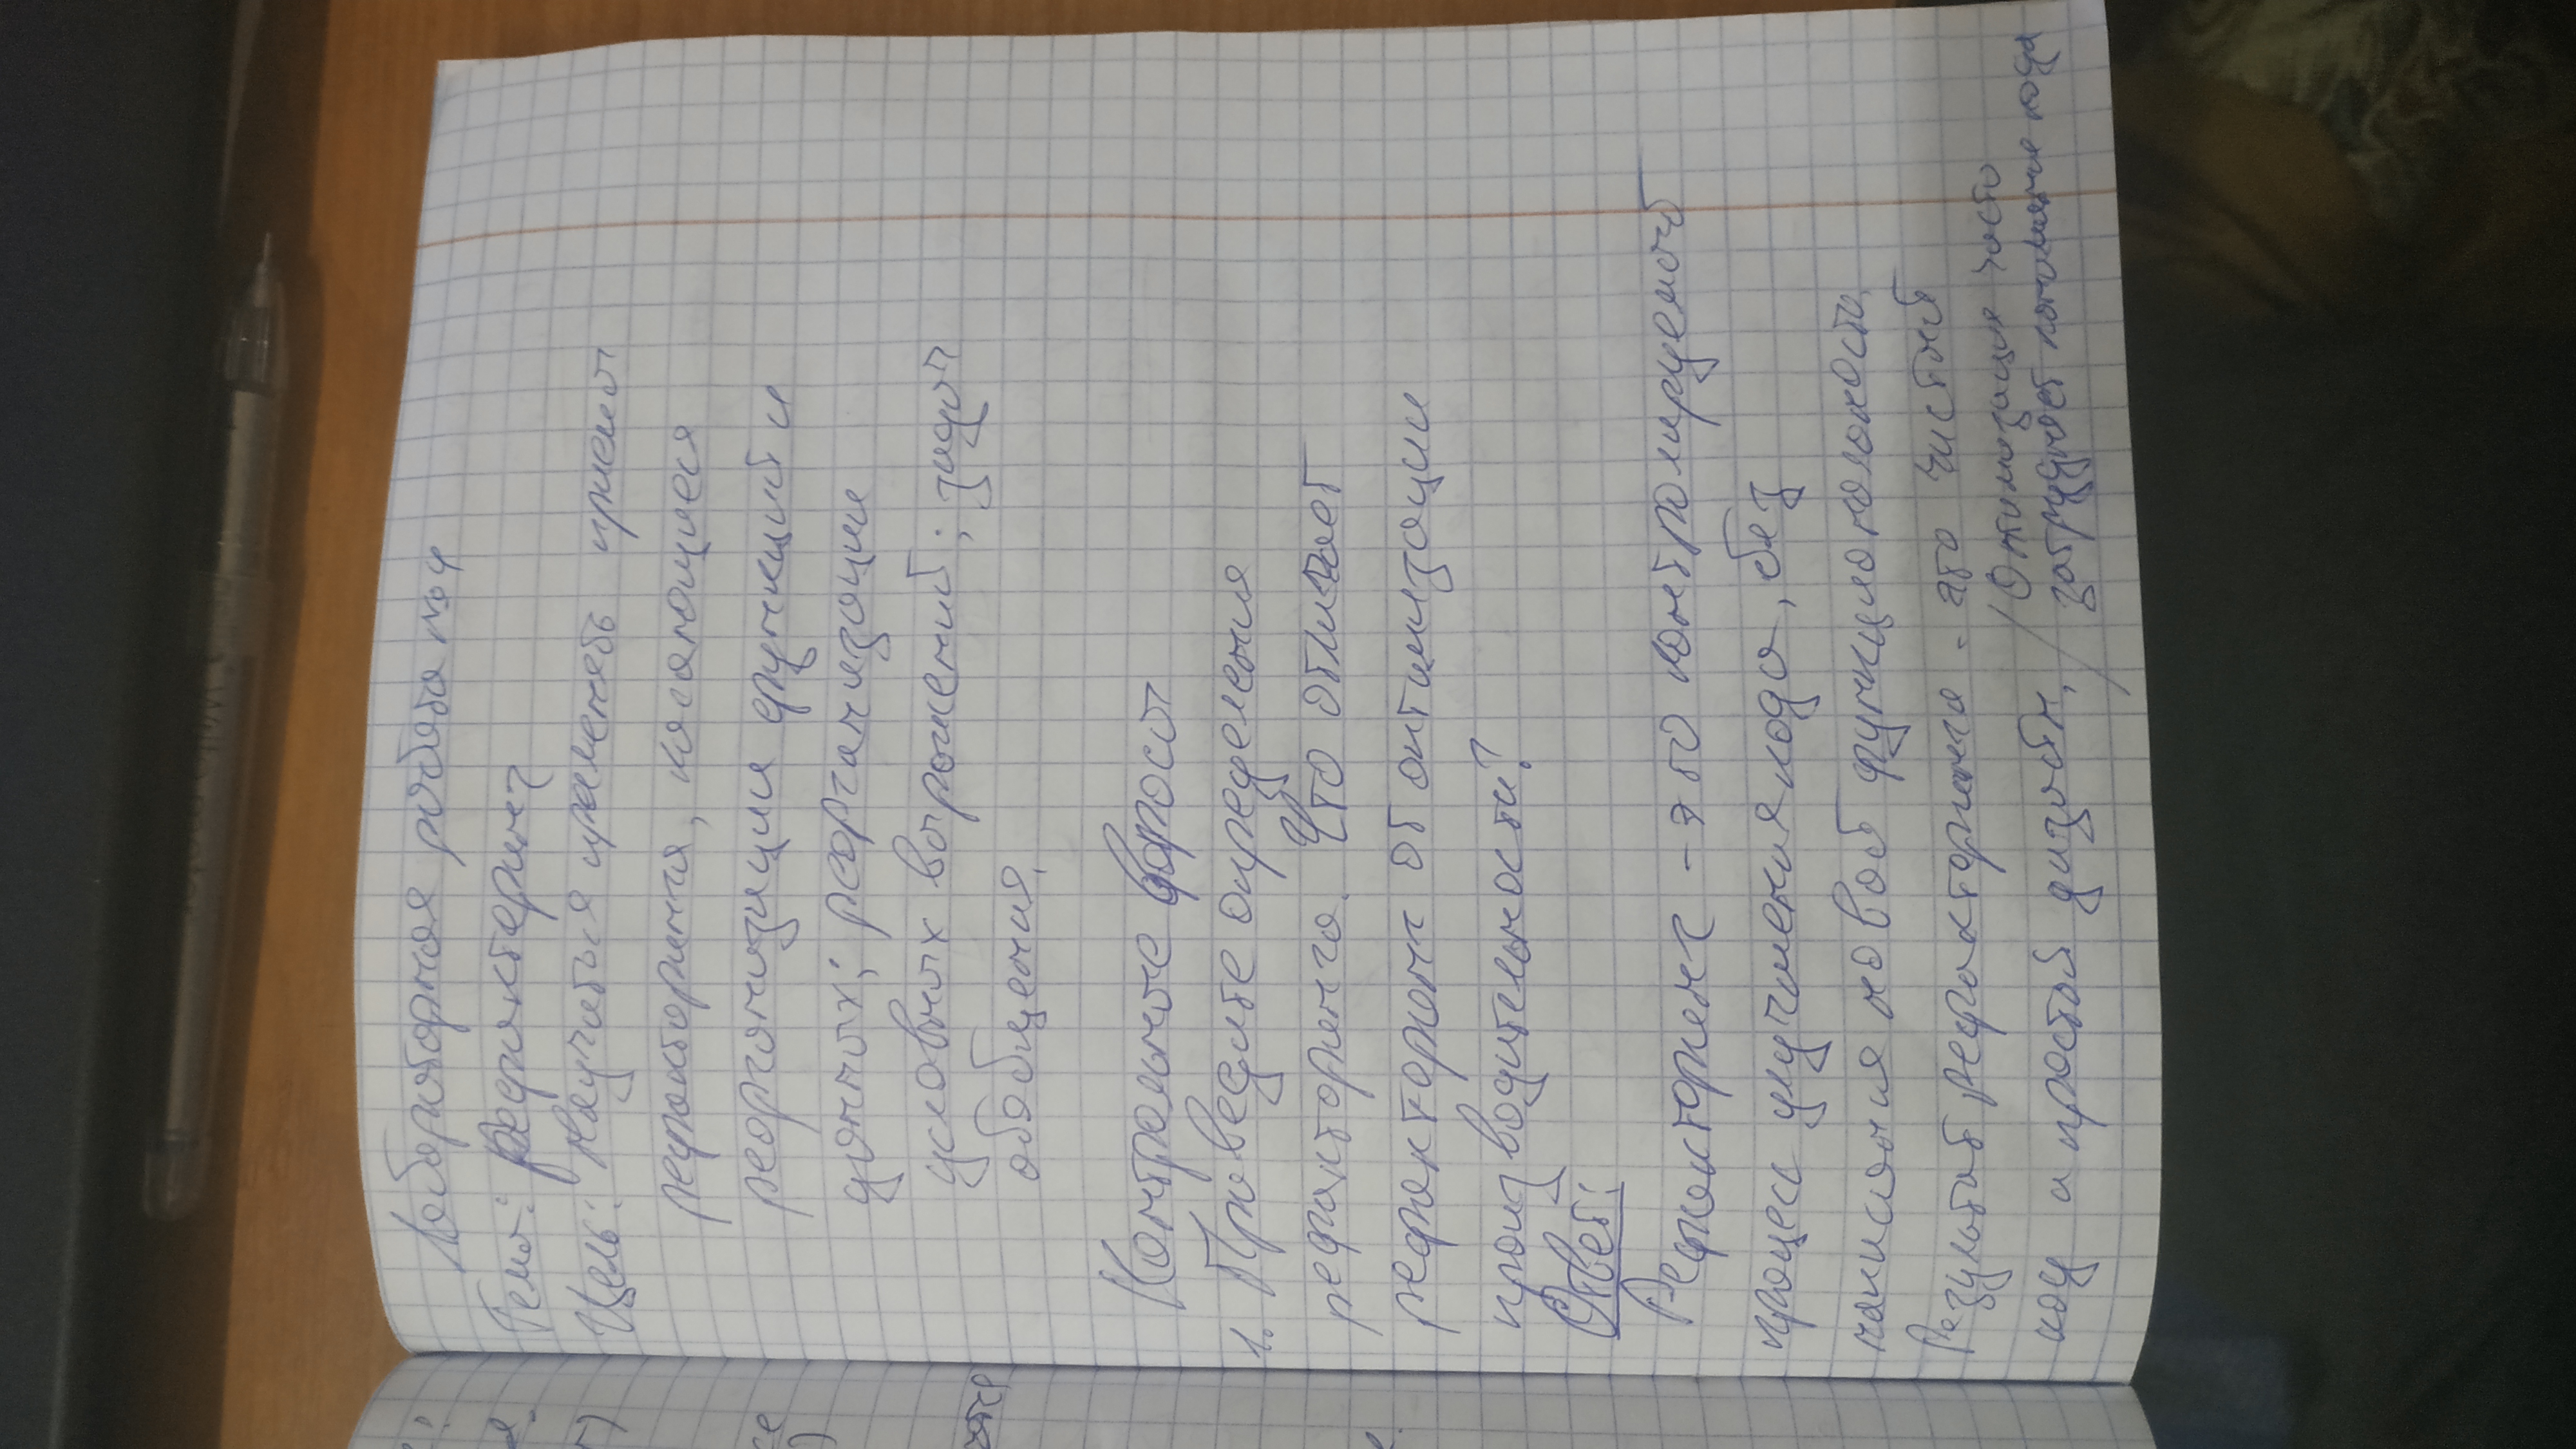 Лабораторная работа №4
Тема: Рефакторинг
Цель: Научиться применять приемы
рефакторинга, касающиеся
реорганизации функций и
данных; реорганизации
условных выражений; задач
обобщения.
Контрольные вопросы
1. Приведите определения
рефакторинга. Что отличает
рефакторинг от оптимизации
производительности?
Ответ:
Рефакторинг - это контролируемый
процесс улучшения кода, без
написания новой функциональности.
Результат рефакторинга - это чистый
код и простой дизайн.
Оптимизация часто
затрудняет понимание кода